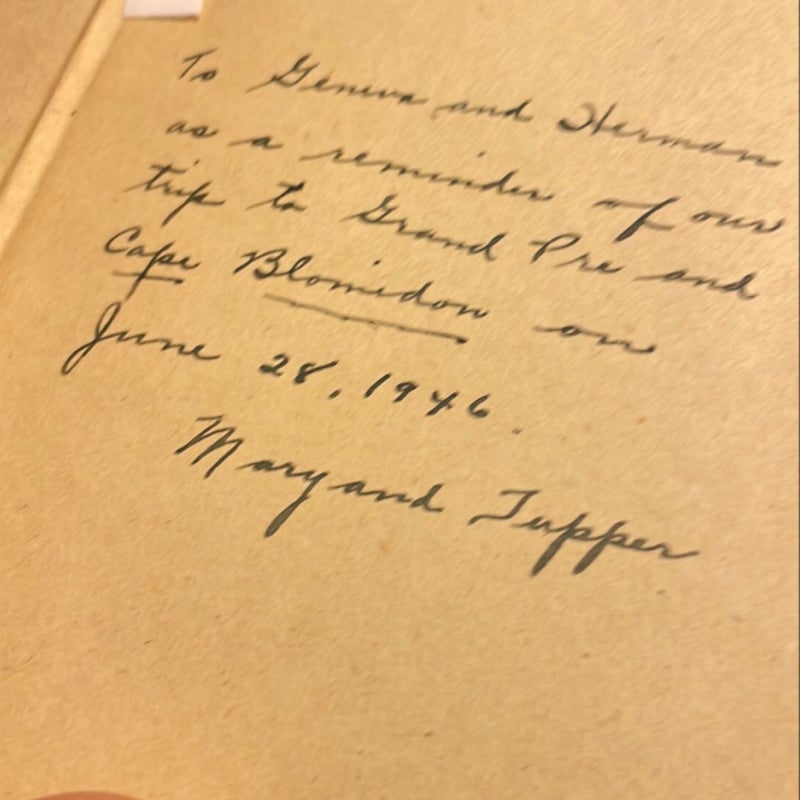 To Geneva and Herman
as a reminder of our
trip to Grand Pre and
Cape Blomidon on
June 28, 1946.
Mary and Tupper